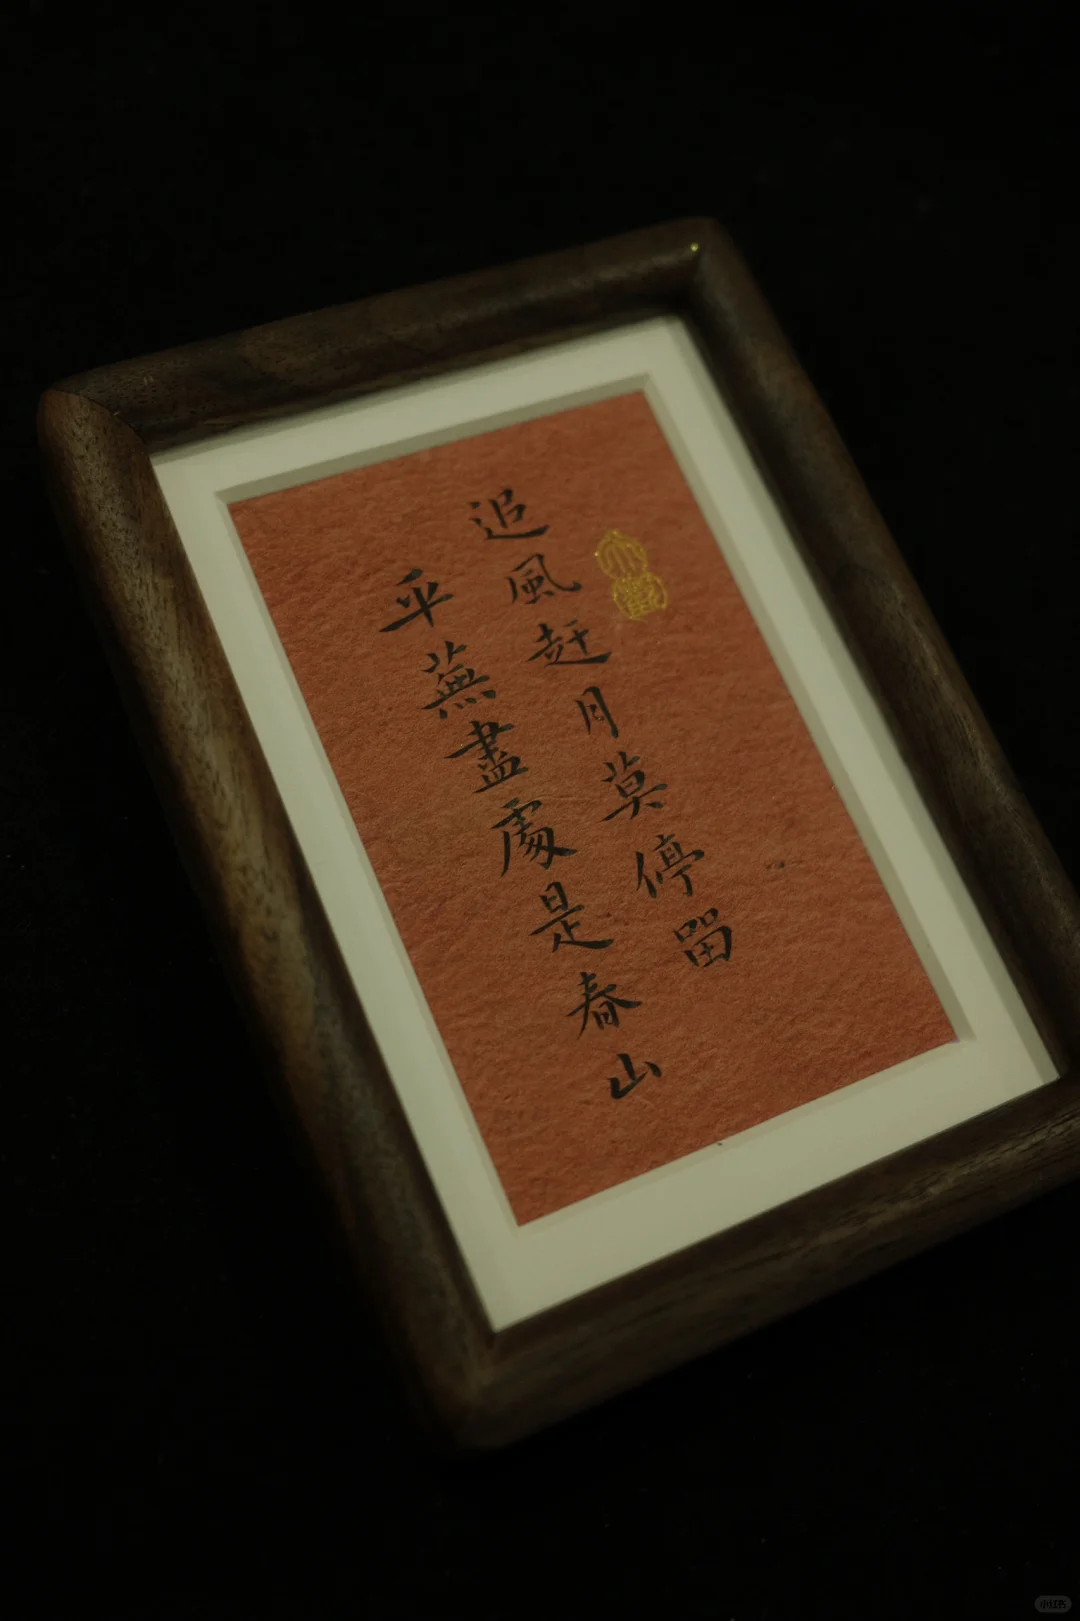 追風赶月莫停留
平蕪盡處是春山
大觀
小红书